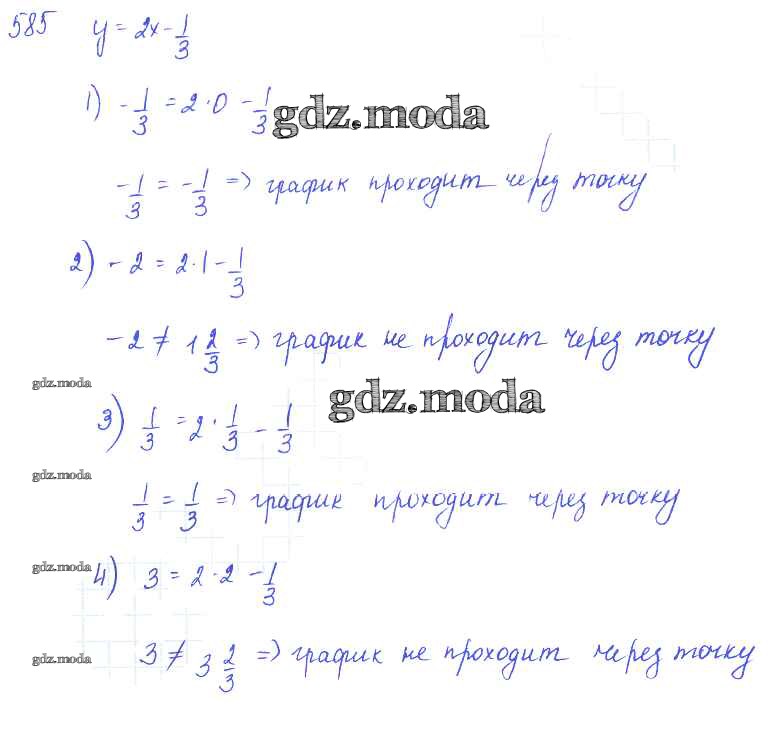 585 y = 2x - 1/3
1) - 1/3 = 2 · 0 - 1/3
gdz.moda
- 1/3 = - 1/3 => график проходит через точку
2) - 2 = 2 · 1 - 1/3
- 2 ≠ 1 2/3 => график не проходит через точку
gdz.moda
gdz.moda
3) 1/3 = 2 · 1/3 - 1/3
gdz.moda
1/3 = 1/3 => график проходит через точку
gdz.moda
4) 3 = 2 · 2 - 1/3
gdz.moda
3 ≠ 3 2/3 => график не проходит через точку